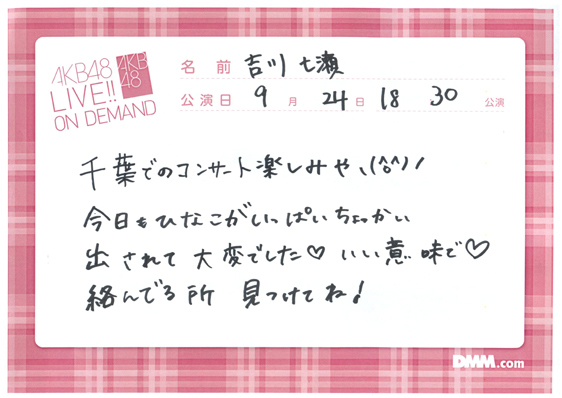 AKB48
LIVE!!
ON DEMAND
AKB
48
名前 吉川七瀬
公演日 9月24日 18 30 公演
千葉でのコンサート楽しみや、(^o^)ノ
今日もひなこがいっぱいちょっかい
出されて大変でした♡いい意味で♡
絡んでる所 見つけてね!
DMM.com